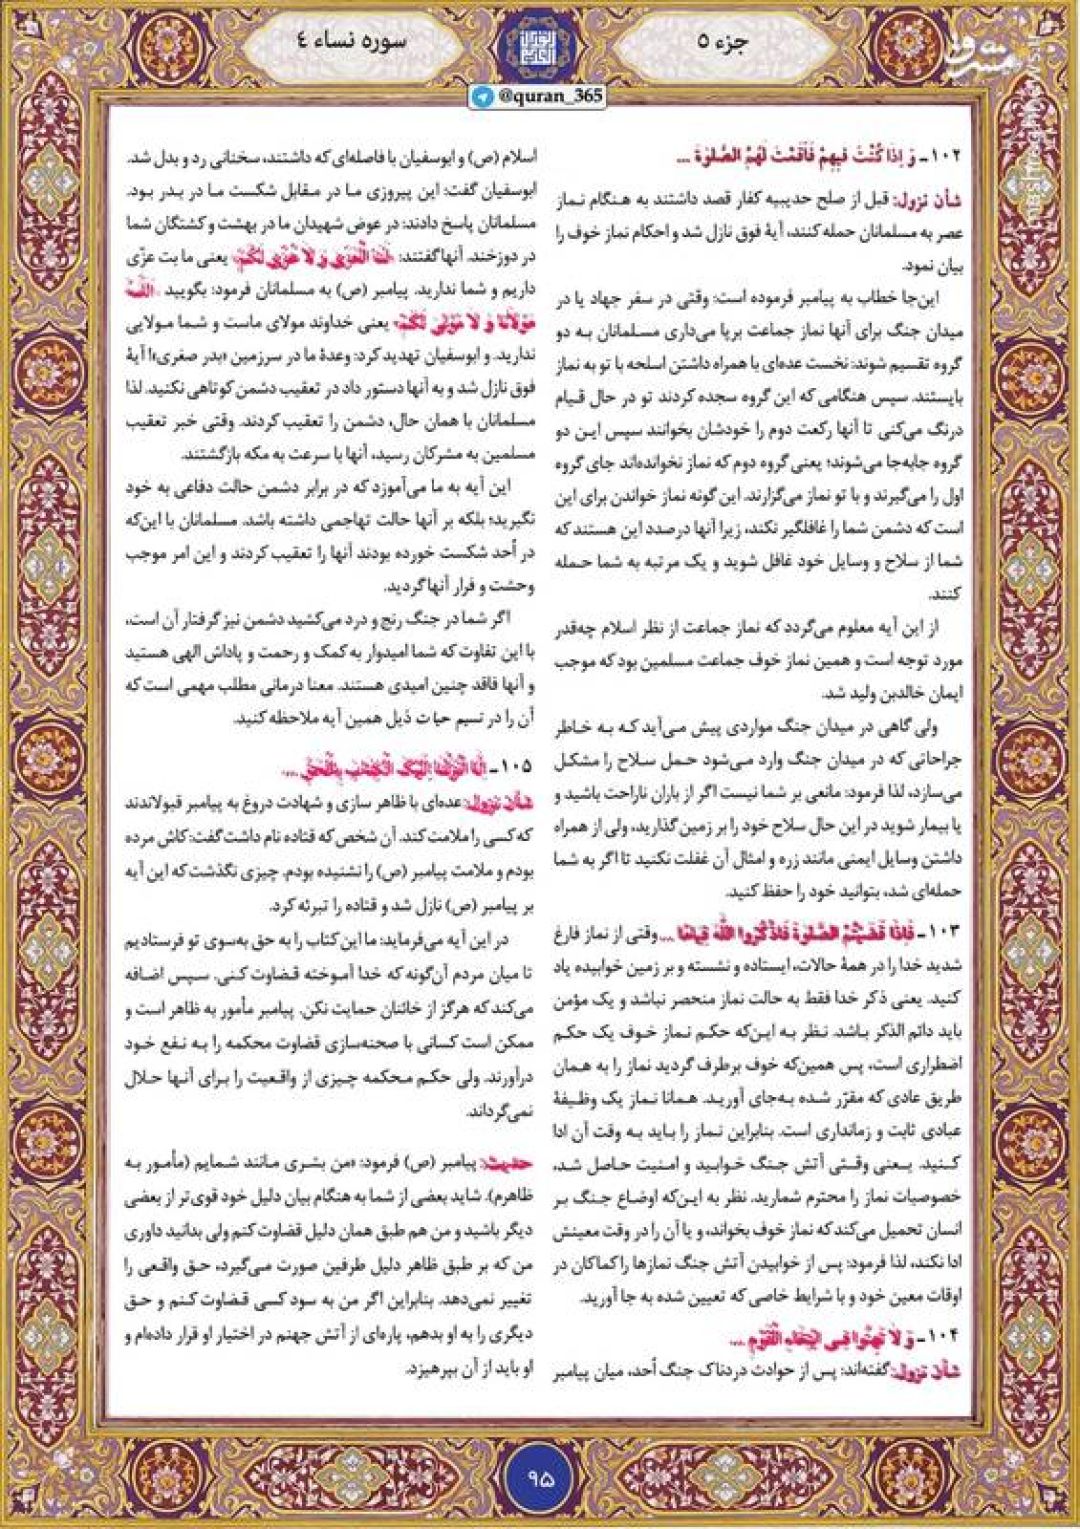 جزء ۵
سوره نساء ٤
@quran_365
مشرق
۱۰۲ـ وَ اِذا كُنْتَ فيهِمْ فَاَقَمْتَ لَهُمُ الصَّلوةَ ...
شأن نزول: قبل از صلح حدیبیه کفار قصد داشتند به هنگام نماز
عصر به مسلمانان حمله کنند، آیۀ فوق نازل شد و احکام نماز خوف را
بیان نمود.
این‌جا خطاب به پیامبر فرموده است: وقتی در سفر جهاد یا در
میدان جنگ برای آنها نماز جماعت برپا می‌داری مسلمانان به دو
گروه تقسیم شوند: نخست عده‌ای با همراه داشتن اسلحه با تو به نماز
بایستند. سپس هنگامی که این گروه سجده کردند تو در حال قیام
درنگ می‌کنی تا آنها رکعت دوم را خودشان بخوانند سپس این دو
گروه جابه‌جا می‌شوند؛ یعنی گروه دوم که نماز نخوانده‌اند جای گروه
اول را می‌گیرند و با تو نماز می‌گزارند. این گونه نماز خواندن برای این
است که دشمن شما را غافلگیر نکند، زیرا آنها درصدد این هستند که
شما از سلاح و وسایل خود غافل شوید و یک مرتبه به شما حمله
کنند.
از این آیه معلوم می‌گردد که نماز جماعت از نظر اسلام چه‌قدر
مورد توجه است و همین نماز خوف جماعت مسلمین بود که موجب
ایمان خالدبن ولید شد.
ولی گاهی در میدان جنگ مواردی پیش می‌آید که به خاطر
جراحاتی که در میدان جنگ وارد می‌شود حمل سلاح را مشکل
می‌سازد، لذا فرمود: مانعی بر شما نیست اگر از باران ناراحت باشید و
یا بیمار شوید در این حال سلاح خود را بر زمین گذارید، ولی از همراه
داشتن وسایل ایمنی مانند زره و امثال آن غفلت نکنید تا اگر به شما
حمله‌ای شد، بتوانید خود را حفظ کنید.
۱۰۳ـ فَاِذا قَضَيْتُمُ الصَّلوةَ فَاذْكُرُوا اللّٰهَ قِيامًا ... وقتی از نماز فارغ
شدید خدا را در همۀ حالات، ایستاده و نشسته و بر زمین خوابیده یاد
کنید. یعنی ذکر خدا فقط به حالت نماز منحصر نباشد و یک مؤمن
باید دائم الذکر باشد. نظر به این‌که حکم نماز خوف یک حکم
اضطراری است، پس همین‌که خوف برطرف گردید نماز را به همان
طریق عادی که مقرّر شده به‌جای آورید. همانا نماز یک وظیفۀ
عبادی ثابت و زمانداری است. بنابراین نماز را باید به وقت آن ادا
کنید. یعنی وقتی آتش جنگ خوابید و امنیت حاصل شد،
خصوصیات نماز را محترم شمارید. نظر به این‌که اوضاع جنگ بر
انسان تحمیل می‌کند که نماز خوف بخواند، و یا آن را در وقت معینش
ادا نکند، لذا فرمود: پس از خوابیدن آتش جنگ نمازها را کماکان در
اوقات معین خود و با شرایط خاصی که تعیین شده به جا آورید.
۱۰۴ـ وَ لا تَهِنُوا فِى ابْتِغاءِ الْقَوْمِ ...
شأن نزول: گفته‌اند: پس از حوادث دردناک جنگ اُحد، میان پیامبر
اسلام (ص) و ابوسفیان با فاصله‌ای که داشتند، سخنانی رد و بدل شد.
ابوسفیان گفت: این پیروزی ما در مقابل شکست ما در بدر بود.
مسلمانان پاسخ دادند: در عوض شهیدان ما در بهشت و کشتگان شما
در دوزخند. آنها گفتند: «لَنَا الْعُزّى وَ لا عُزّى لَكُمْ» یعنی ما بت عزّی
داریم و شما ندارید. پیامبر (ص) به مسلمانان فرمود: بگویید «اَللّٰهُ
مَوْلانا وَ لا مَوْلى لَكُمْ» یعنی خداوند مولای ماست و شما مولایی
ندارید. و ابوسفیان تهدید کرد: وعدۀ ما در سرزمین «بدر صغری»! آیۀ
فوق نازل شد و به آنها دستور داد در تعقیب دشمن کوتاهی نکنید. لذا
مسلمانان با همان حال، دشمن را تعقیب کردند. وقتی خبر تعقیب
مسلمین به مشرکان رسید، آنها با سرعت به مکه بازگشتند.
این آیه به ما می‌آموزد که در برابر دشمن حالت دفاعی به خود
نگیرید؛ بلکه بر آنها حالت تهاجمی داشته باشد. مسلمانان با این‌که
در اُحد شکست خورده بودند آنها را تعقیب کردند و این امر موجب
وحشت و فرار آنها گردید.
اگر شما در جنگ رنج و درد می‌کشید دشمن نیز گرفتار آن است،
با این تفاوت که شما امیدوار به کمک و رحمت و پاداش الهی هستید
و آنها فاقد چنین امیدی هستند. معنا درمانی مطلب مهمی است که
آن را در تسیم حیات ذیل همین آیه ملاحظه کنید.
۱۰۵ـ اِنّا اَنْزَلْنا اِلَيْكَ الْكِتابَ بِالْحَقِّ ...
شأن نزول: عده‌ای با ظاهر سازی و شهادت دروغ به پیامبر قبولاندند
که کسی را ملامت کند. آن شخص که قتاده نام داشت گفت: کاش مرده
بودم و ملامت پیامبر (ص) را نشنیده بودم. چیزی نگذشت که این آیه
بر پیامبر (ص) نازل شد و قتاده را تبرئه کرد.
در این آیه می‌فرماید: ما این کتاب را به حق به‌سوی تو فرستادیم
تا میان مردم آن‌گونه که خدا آموخته قضاوت کنی. سپس اضافه
می‌کند که هرگز از خائنان حمایت نکن. پیامبر مأمور به ظاهر است و
ممکن است کسانی با صحنه‌سازی قضاوت محکمه را به نفع خود
درآورند. ولی حکم محکمه چیزی از واقعیت را برای آنها حلال
نمی‌گرداند.
حدیث: پیامبر (ص) فرمود: «من بشری مانند شمایم (مأمور به
ظاهرم). شاید بعضی از شما به هنگام بیان دلیل خود قوی‌تر از بعضی
دیگر باشید و من هم طبق همان دلیل قضاوت کنم ولی بدانید داوری
من که بر طبق ظاهر دلیل طرفین صورت می‌گیرد، حق واقعی را
تغییر نمی‌دهد. بنابراین اگر من به سود کسی قضاوت کنم و حق
دیگری را به او بدهم، پاره‌ای از آتش جهنم در اختیار او قرار داده‌ام و
او باید از آن بپرهیزد.
۹۵